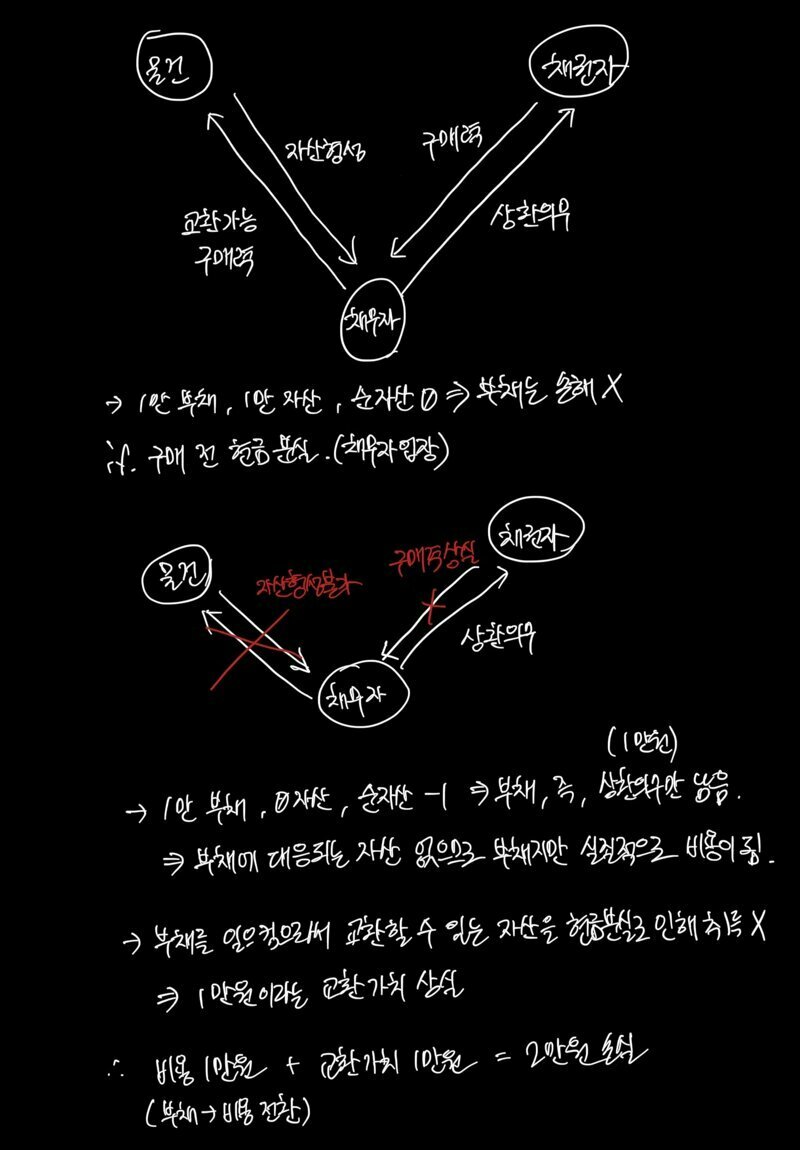 물건
채권자
자산형성
구매력
교환가능
구매력
상환의무
채무자
→ 1만 부채, 1만 자산, 순자산 0 ⇒ 부채는 손해 X
if. 구매 전 현금 분실.(채무자 입장)
물건
채권자
자산형성불가
구매력상실
상환의무
채무자
(1만원)
→ 1만 부채, 0 자산, 순자산 -1 ⇒ 부채, 즉, 상환의무만 남음.
⇒ 부채에 대응되는 자산 없으므로 부채지만 실질적으로 비용이 됨.
→ 부채를 일으킴으로써 교환할 수 있는 자산을 현금분실로 인해 취득 X
⇒ 1만원이라는 교환가치 상실
∴ 비용 1만원 + 교환가치 1만원 = 2만원 손실
(부채→비용 전환)